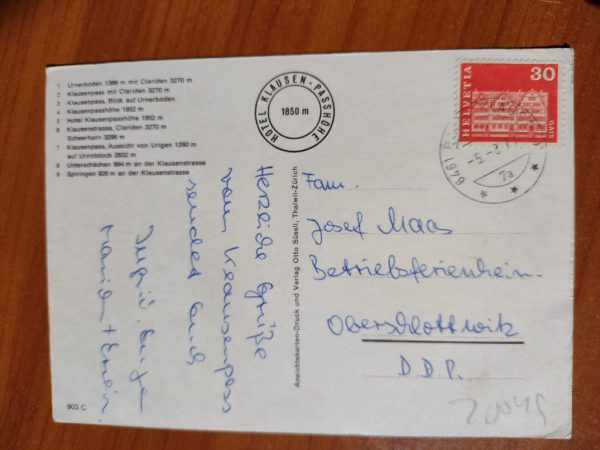 1 Urnerboden 1389 m mit Clariden 3270 m
2 Klausenpass mit Clariden 3270 m
3 Klausenpass, Blick auf Urnerboden
4 Klausenpasshöhe 1952 m
5 Hotel Klausenpasshöhe 1952 m
6 Klausenstrasse, Clariden 3270 m
Scheerhorn 3296 m
7 Klausenpass, Aussicht von Urigen 1280 m
auf Urirotstock 2932 m
8 Unterschächen 994 m an der Klausenstrasse
9 Spiringen 926 m an der Klausenstrasse
HOTEL KLAUSEN-PASSHÖHE
1850 m
HELVETIA
30
GAIS
6461
-5.-8
7a
Herzliche Grüße
vom Klausenpass
sendet Euch
Ingrid
Ansichtskarten-Druck und Verlag Otto Süssli, Thalwil-Zürich
Fam.
Josef Maas
Betriebsferienheim
Oberschlottwitz
D.D.R.
903 C